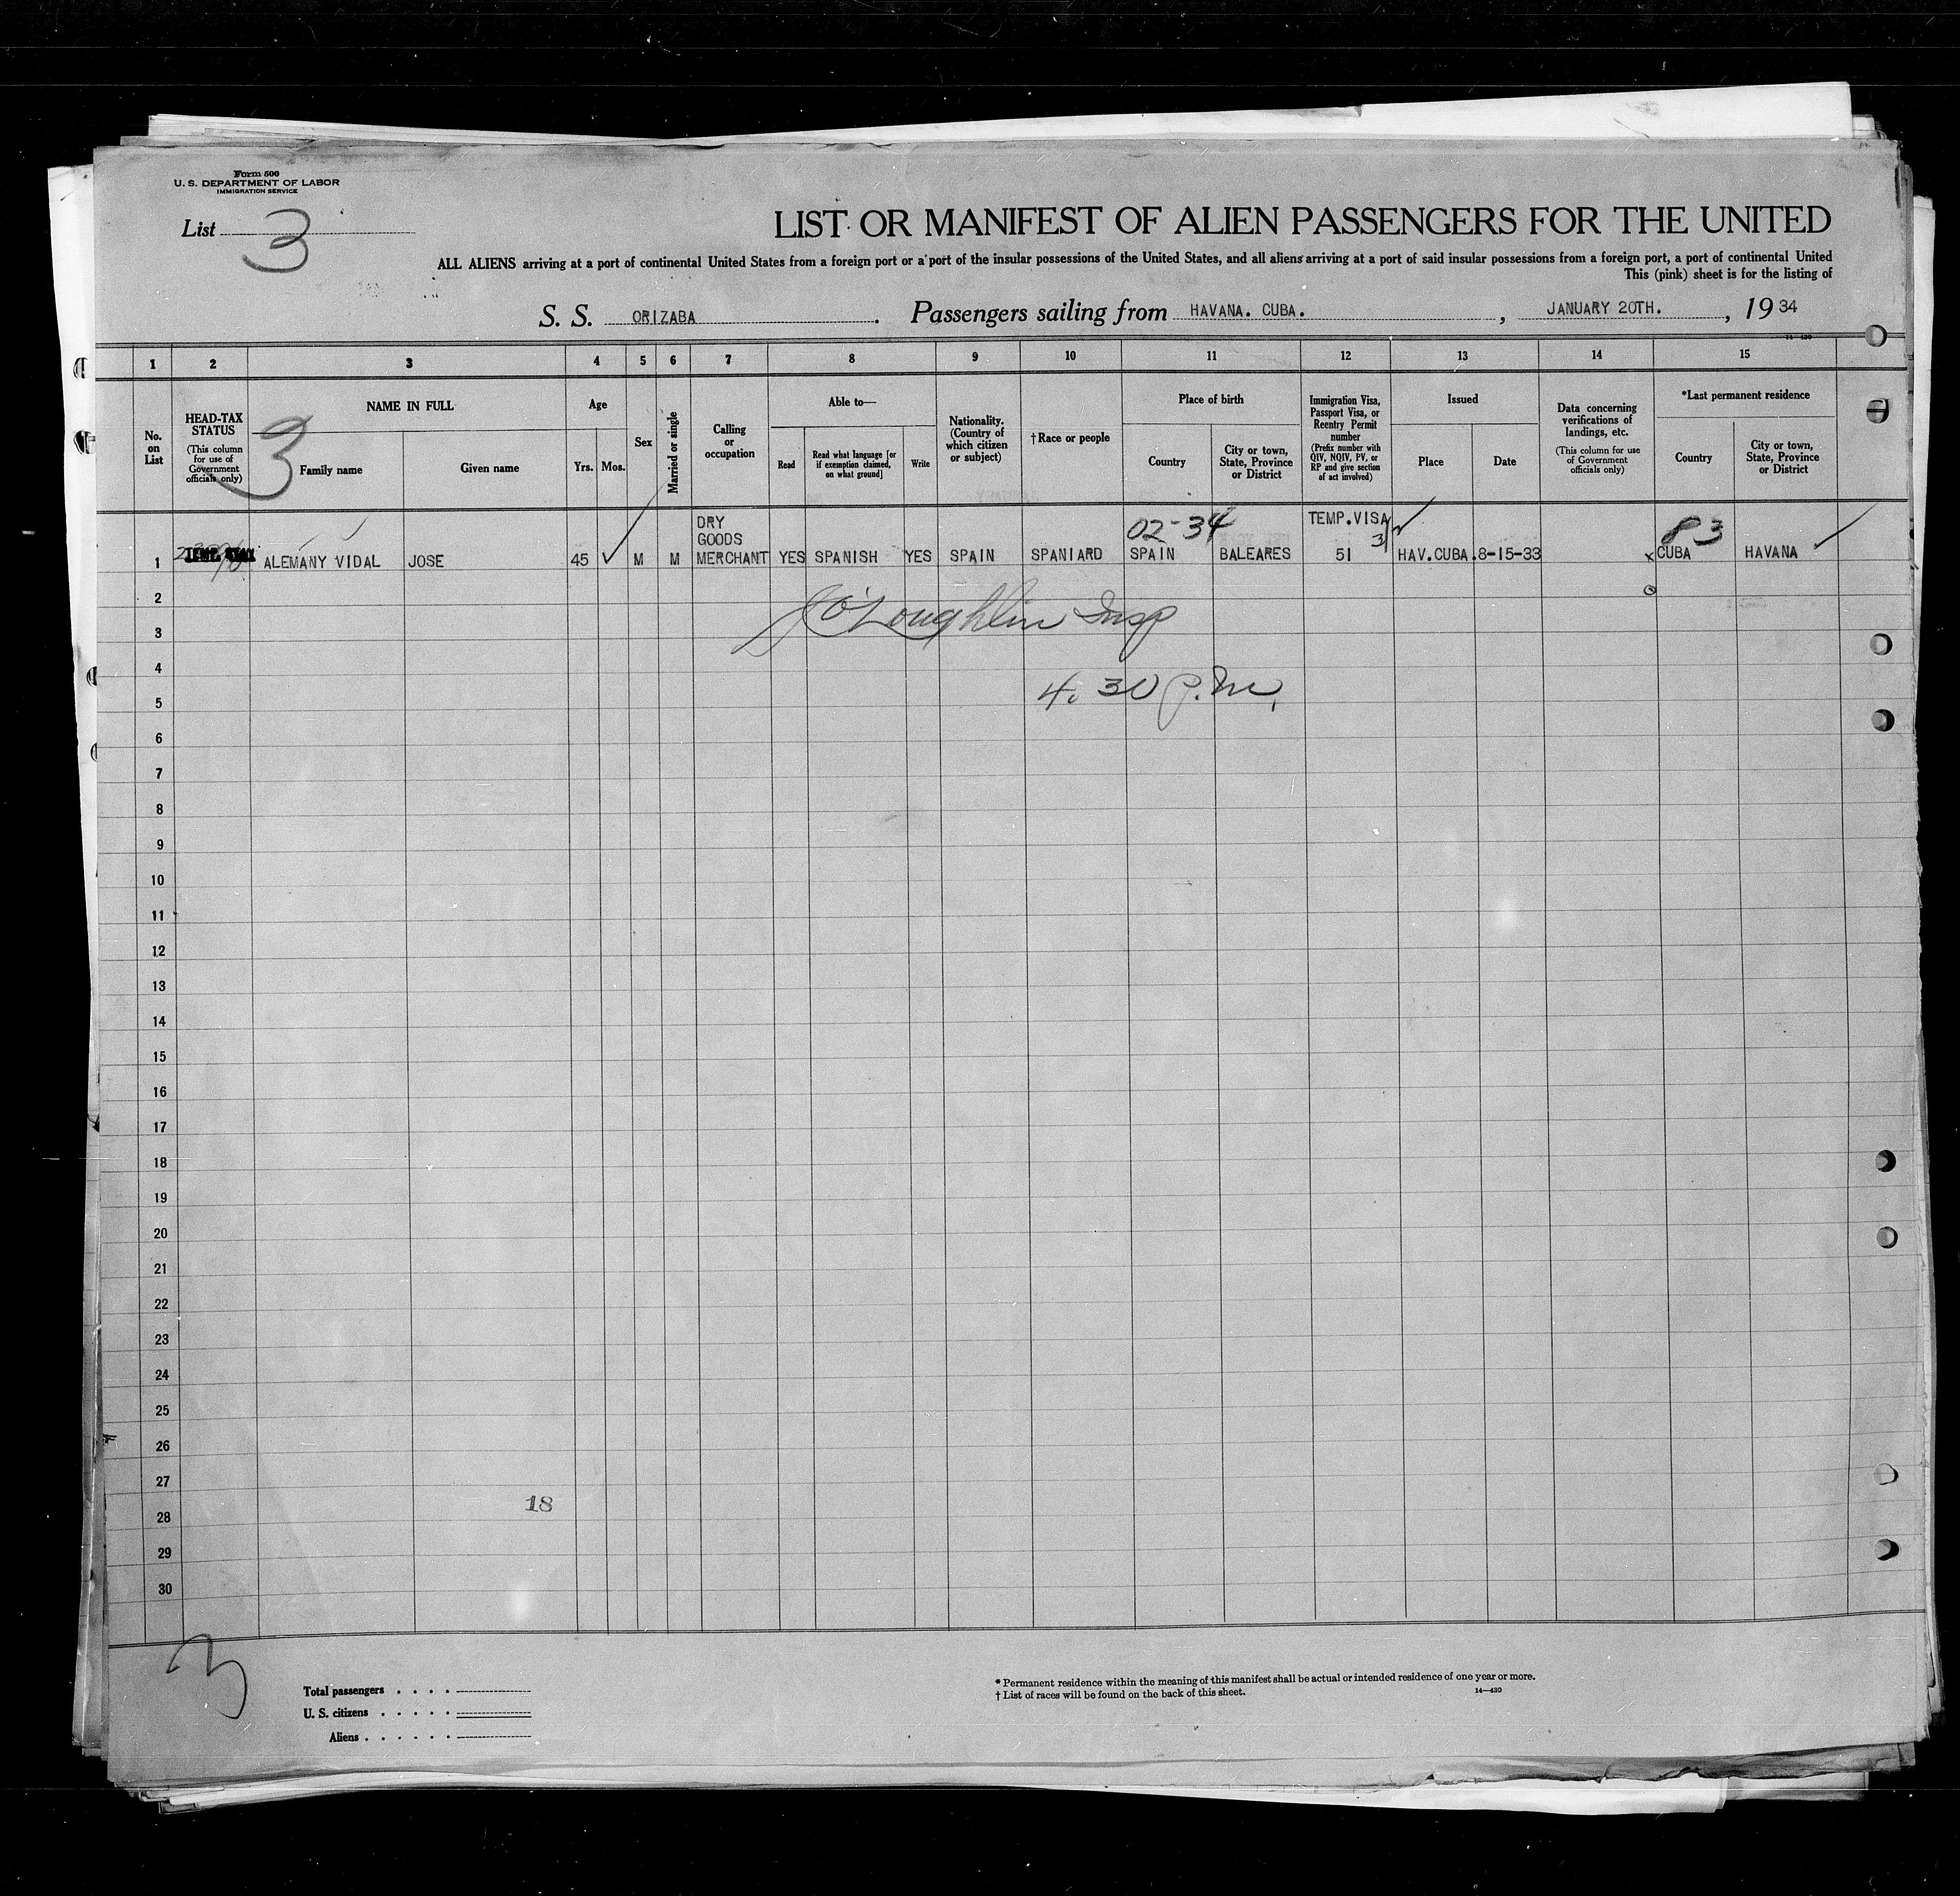 Form 500
U. S. DEPARTMENT OF LABOR
IMMIGRATION SERVICE
List 3
LIST OR MANIFEST OF ALIEN PASSENGERS FOR THE UNITED
ALL ALIENS arriving at a port of continental United States from a foreign port or a port of the insular possessions of the United States, and all aliens arriving at a port of said insular possessions from a foreign port, a port of continental United
This (pink) sheet is for the listing of
S. S. ORIZABA. Passengers sailing from HAVANA. CUBA. , JANUARY 20TH. , 19 34
14-430
1 2 3 4 5 6 7 8 9 10 11 12 13 14 15
No. on List
HEAD-TAX STATUS
(This column for use of Government officials only)
3
NAME IN FULL
Family name
Given name
Age
Yrs.
Mos.
Sex
Married or single
Calling or occupation
Able to—
Read
Read what language [or if exemption claimed, on what ground]
Write
Nationality. (Country of which citizen or subject)
†Race or people
Place of birth
Country
City or town, State, Province or District
Immigration Visa, Passport Visa, or Reentry Permit number
(Prefix number with QIV, NQIV, PV, or RP and give section of act involved)
Issued
Place
Date
Data concerning verifications of landings, etc.
(This column for use of Government officials only)
*Last permanent residence
Country
City or town, State, Province or District
DRY GOODS 02-34 TEMP.VISA 3 83
1 ALEMANY VIDAL JOSE 45 M M MERCHANT YES SPANISH YES SPAIN SPANIARD SPAIN BALEARES 51 HAV.CUBA. 8-15-33 x CUBA HAVANA
2
J O'Loughlin Insp
3
4
4.30 P.M.
5
6
7
8
9
10
11
12
13
14
15
16
17
18
19
20
21
22
23
24
25
26
27
18
28
29
30
3
Total passengers
U. S. citizens
Aliens
* Permanent residence within the meaning of this manifest shall be actual or intended residence of one year or more.
† List of races will be found on the back of this sheet.
14—430